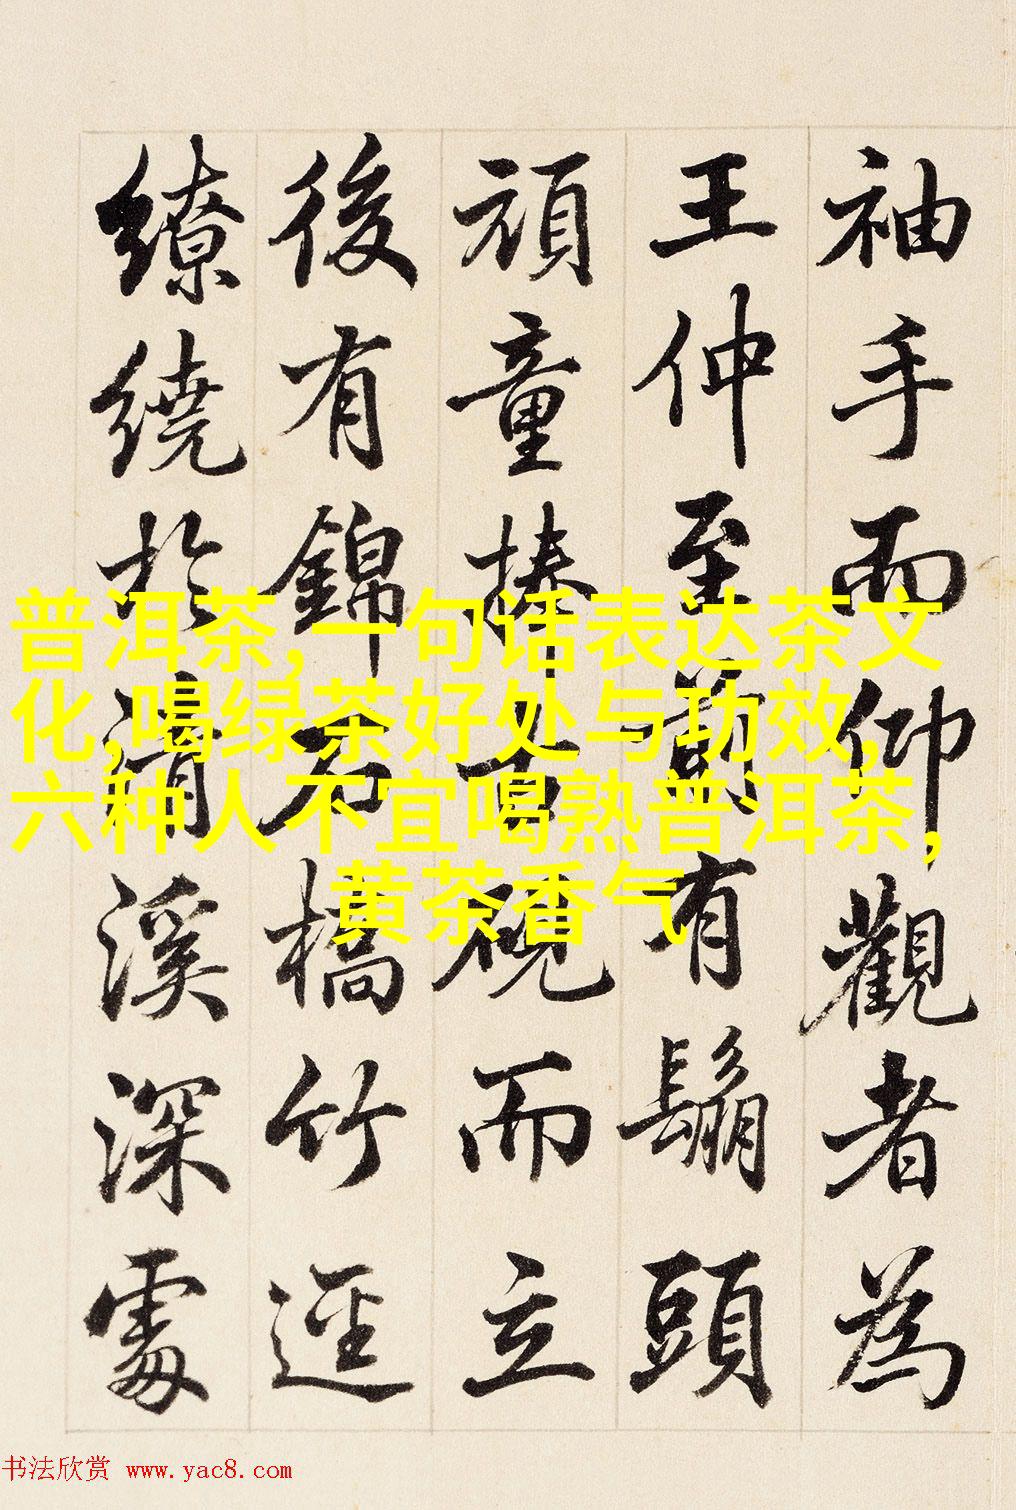 袖手而仰觀者為
王仲至前有鬅頭
頑童捧古硯而立
後有錦石橋竹逕
繚繞於清溪深處
普洱茶,一句话表达茶文
化,喝绿茶好处与功效,
六种人不宜喝熟普洱茶,
黄茶香气
书法欣赏 www.yac8.com